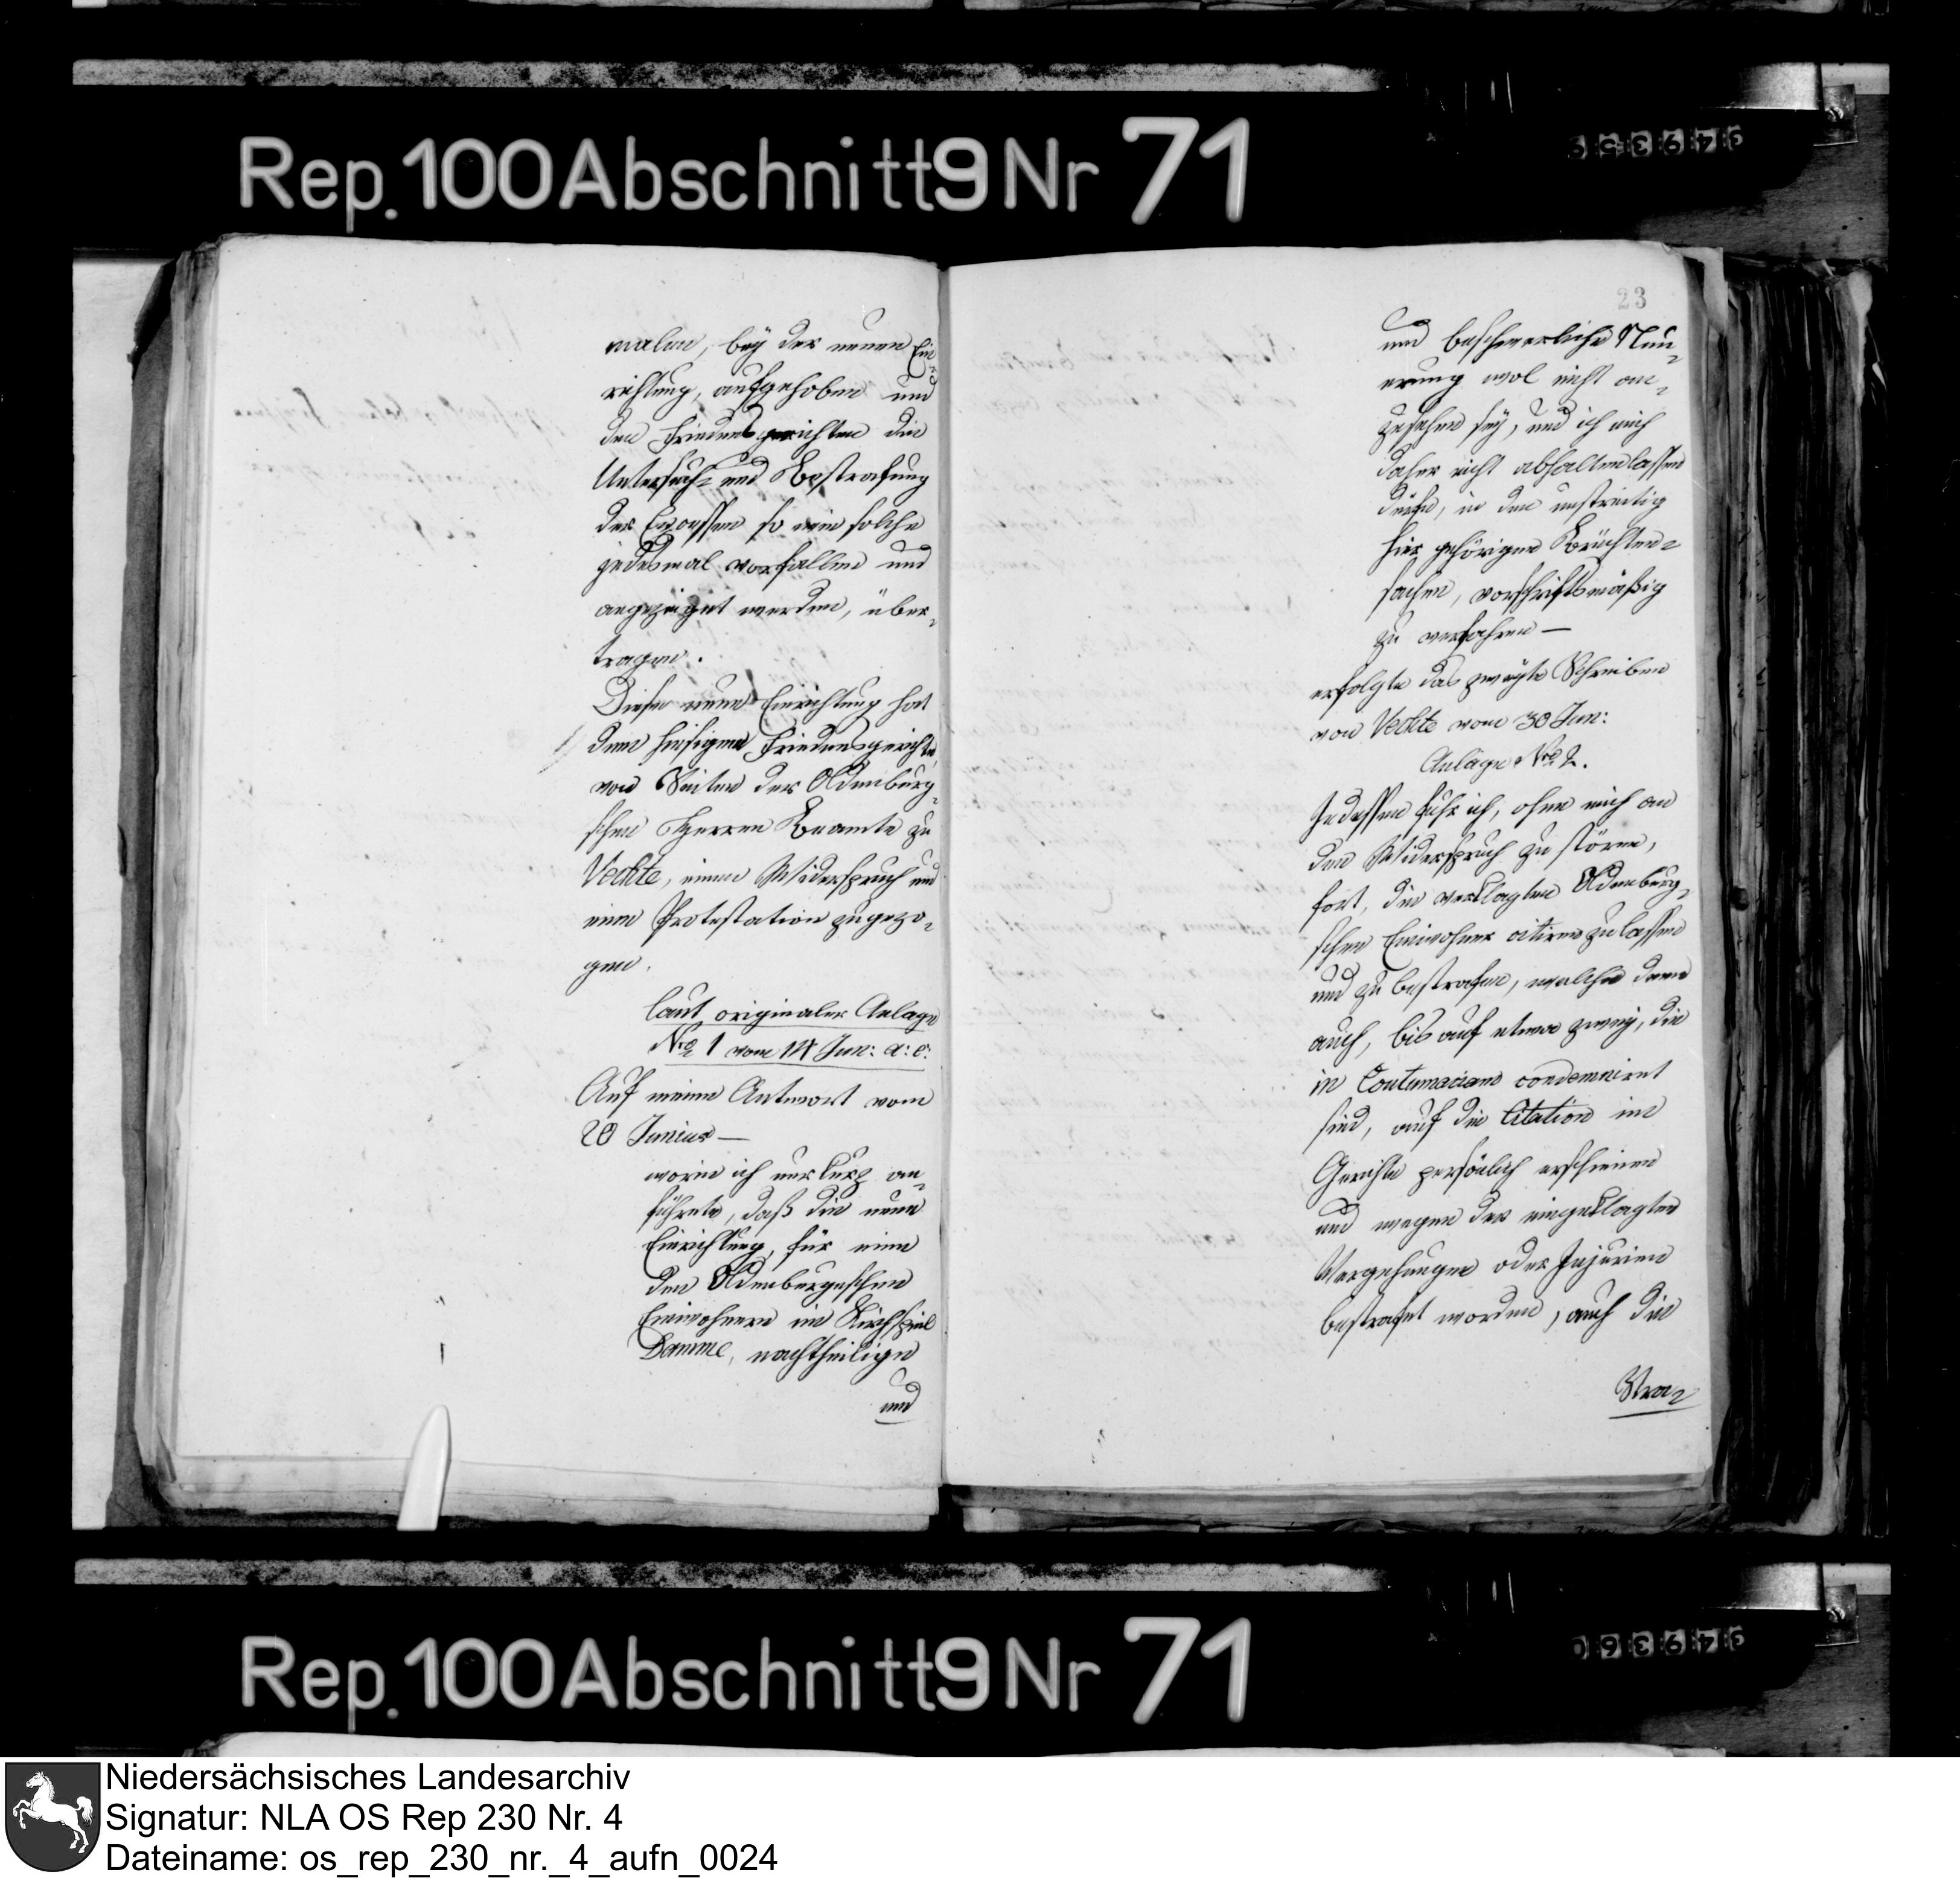 Rep.100Abschnitt9Nr 71
349359
malen, bey der neuen Ein¬
richtung, aufgehoben und
den Friedensgerichten die
Untersuch= und Bestrafung
der Excessen so wie solche
jedesmal vorfallen und
angezeiget werden, über¬
tragen.
Diese neue Einrichtung hat
dem hiesigen Friedensgerichte,
von Seiten der Oldenburg¬
schen Herren Beamte zu
Vechte, einen Widerspruch und
eine Protestation zugezo¬
gen.
laut originaler Anlage
Nro 1 vom 14 Jun: a: c:
Auf meine Antwort vom
20 Junius —
worin ich nur kurz an¬
führete, daß die neue
Einrichtung, für eine
den Oldenburgeschen
Einwohnern im Kirchspiel
Damme, nachtheilige
und
23
und beschwerliche Neu¬
erung wol nicht an¬
zusehen sey, und ich mich
daher nicht abhalten lassen
dürfe, in den unstreitig
hier gehörigen Brüchten=
sachen, vorschriftsmäßig
zu verfahren —
erfolgte das zweyte Schreiben
von Vechte vom 30 Jun:
Anlage Nro 2.
Indessen fuhr ich, ohne mich an
den Widerspruch zu stören,
fort, die verklagten Oldenburg¬
schen Einwohner citiren zu lassen
und zu bestrafen, welche denn
auch, bis auf etwa zwey, die
in Contumaciam condemniret
sind, auf die Citation im
Gerichte persönlich erschienen
und wegen der eingeklagten
Vergehungen oder Injurien
bestrafet worden, auch die
Stra=
Rep.100Abschnitt9Nr 71
349360
Niedersächsisches Landesarchiv
Signatur: NLA OS Rep 230 Nr. 4
Dateiname: os_rep_230_nr._4_aufn_0024